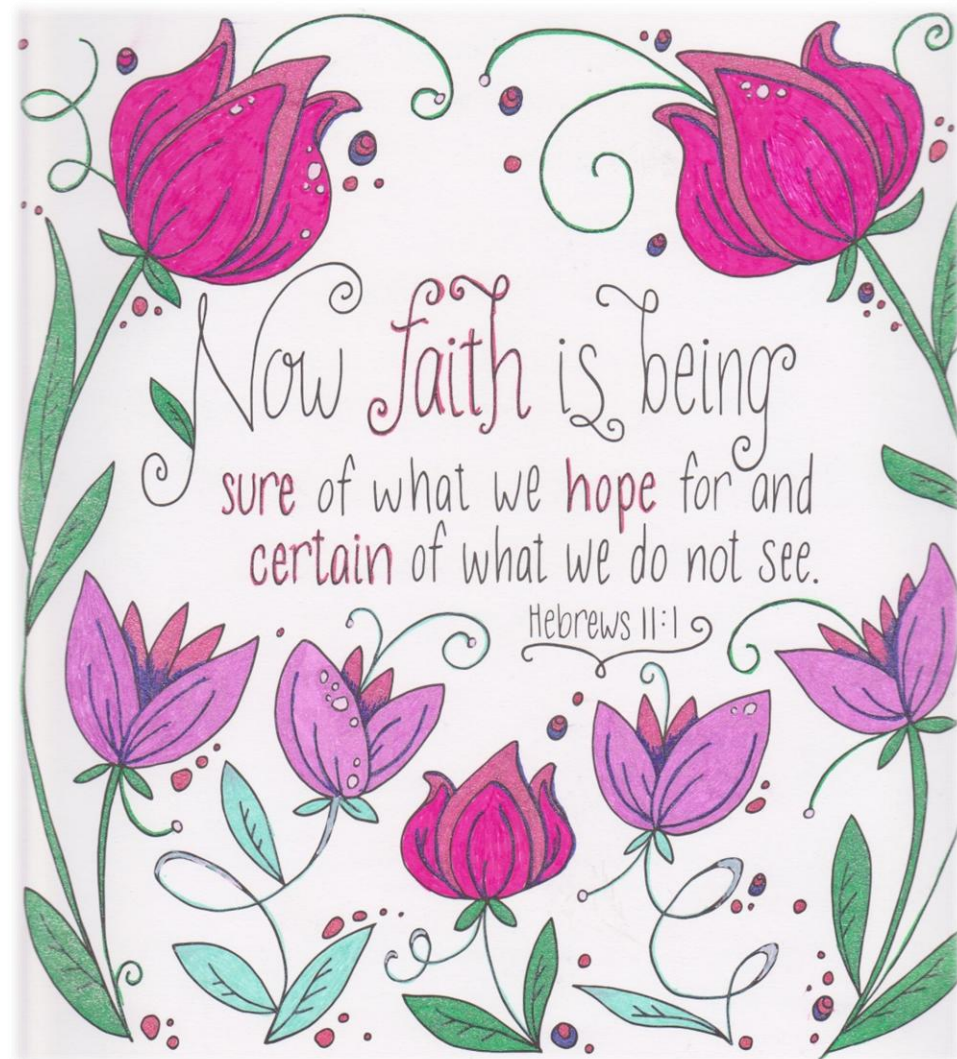 Now faith is being
sure of what we hope for and
certain of what we do not see.
Hebrews 11:1